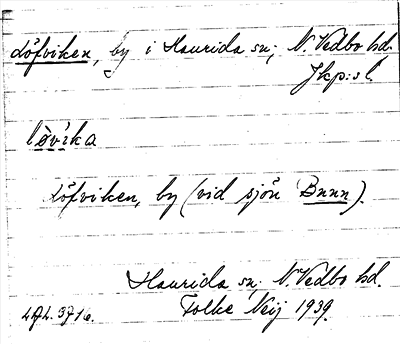 Löfviken, by i Haurida sn; N. Vedbo hd.
Jkp:s l.
lövika
Löfviken, by (vid sjön Bunn).
Haurida sn, N. Vedbo hd.
Folke Neij 1939.